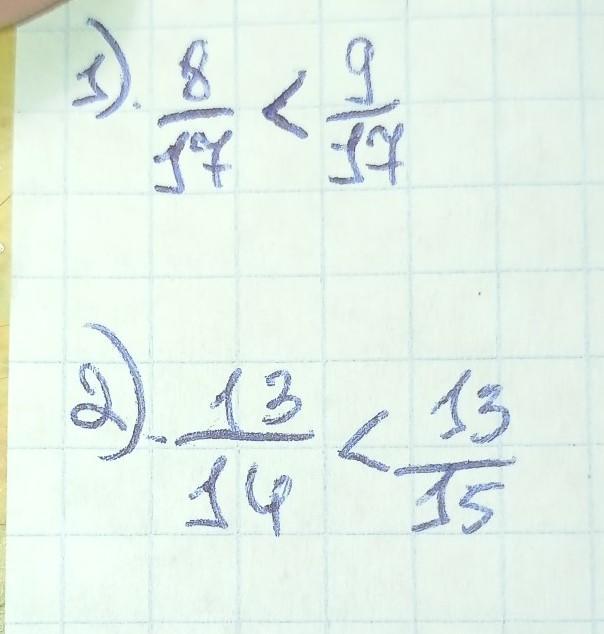 1). 8/17 < 9/17
2). 13/14 < 13/15